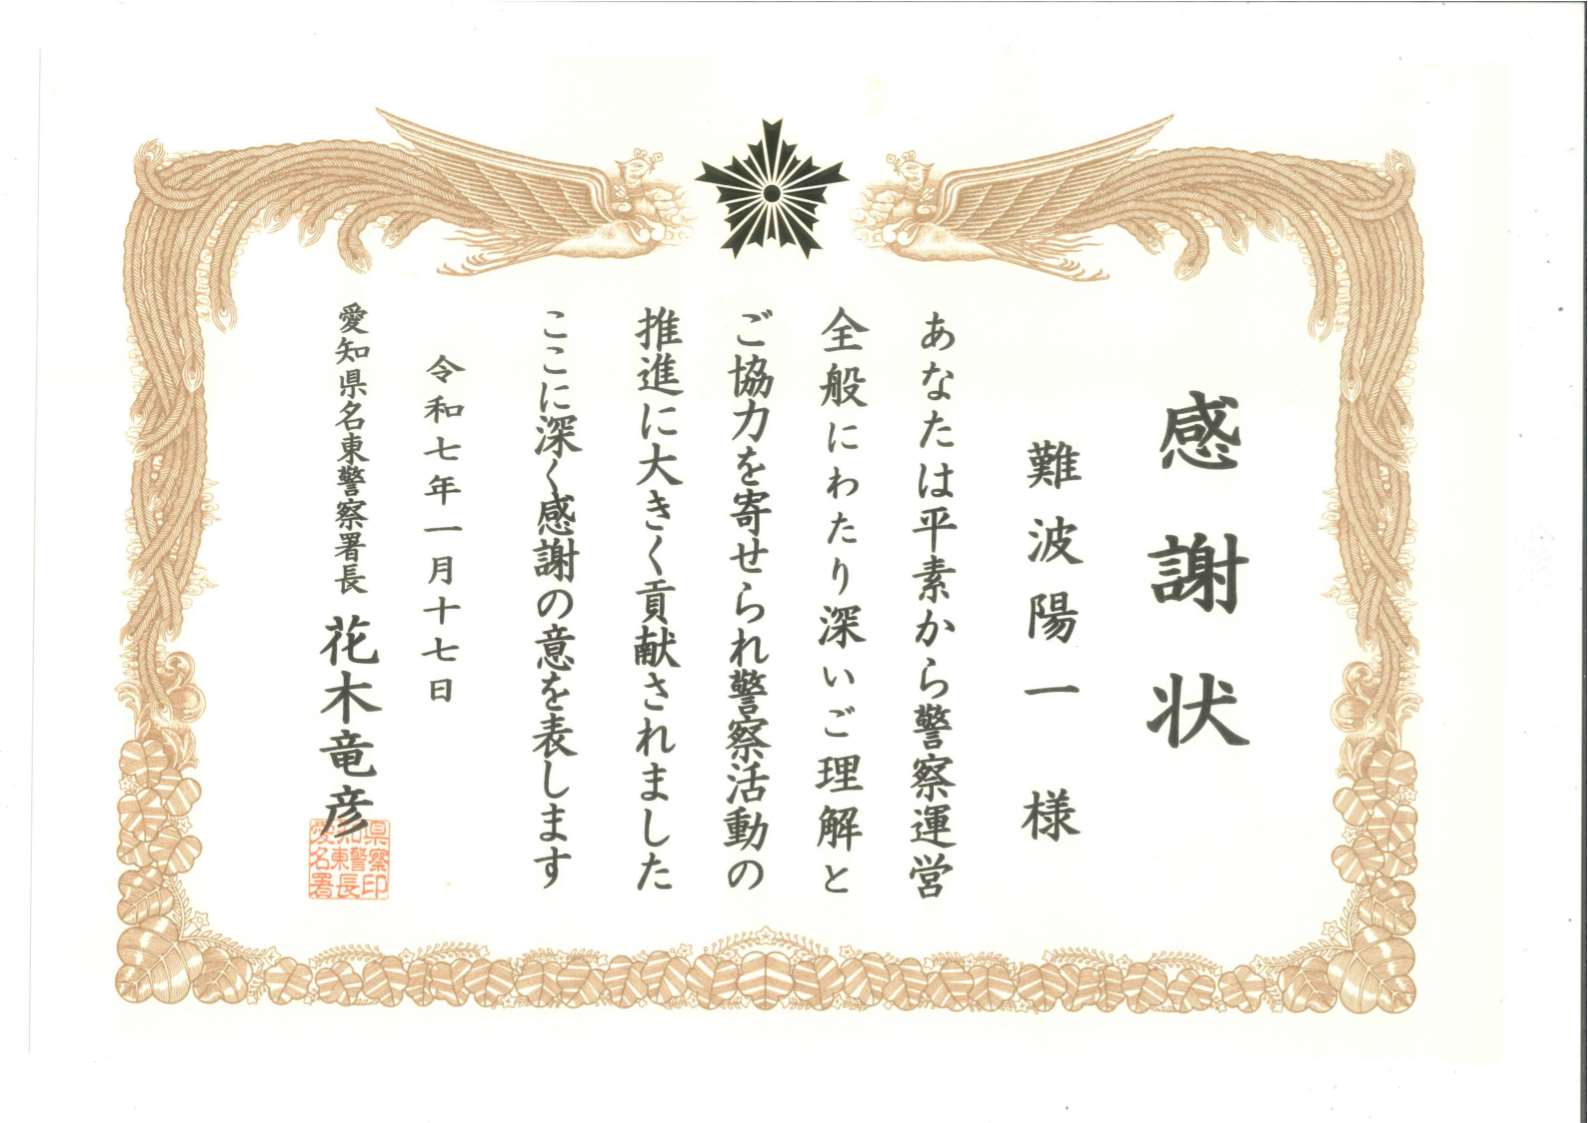 感謝状
難波陽一 様
あなたは平素から警察運営
全般にわたり深いご理解と
ご協力を寄せられ警察活動の
推進に大きく貢献されました
ここに深く感謝の意を表します
令和七年一月十七日
愛知県名東警察署長 花木竜彦
愛知県
名東警察
署長印